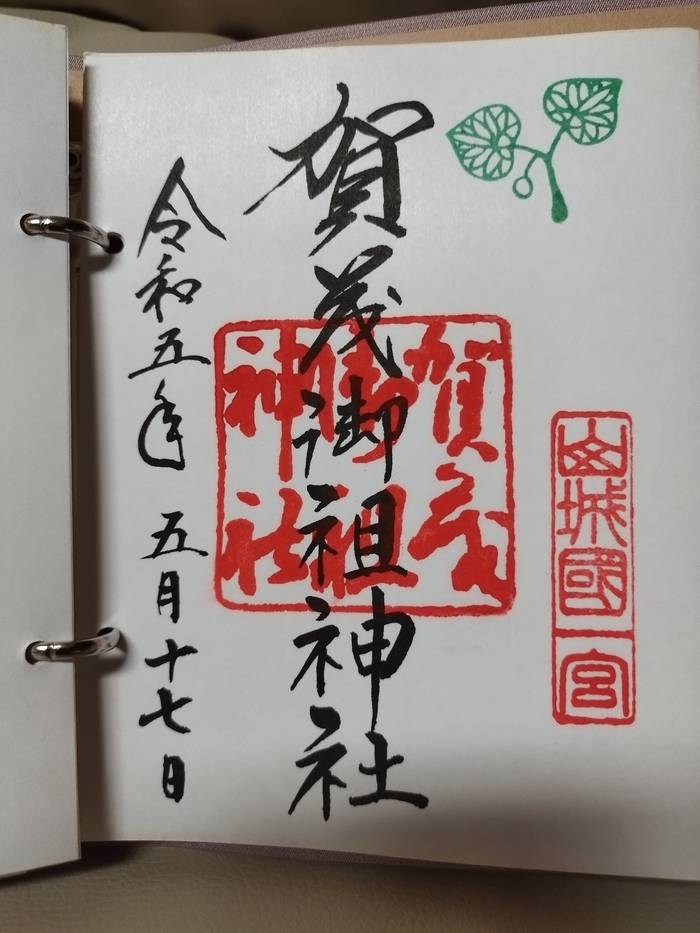 山城國一宮
賀茂御祖神社
賀茂
御祖
神社
令和五年 五月十七日